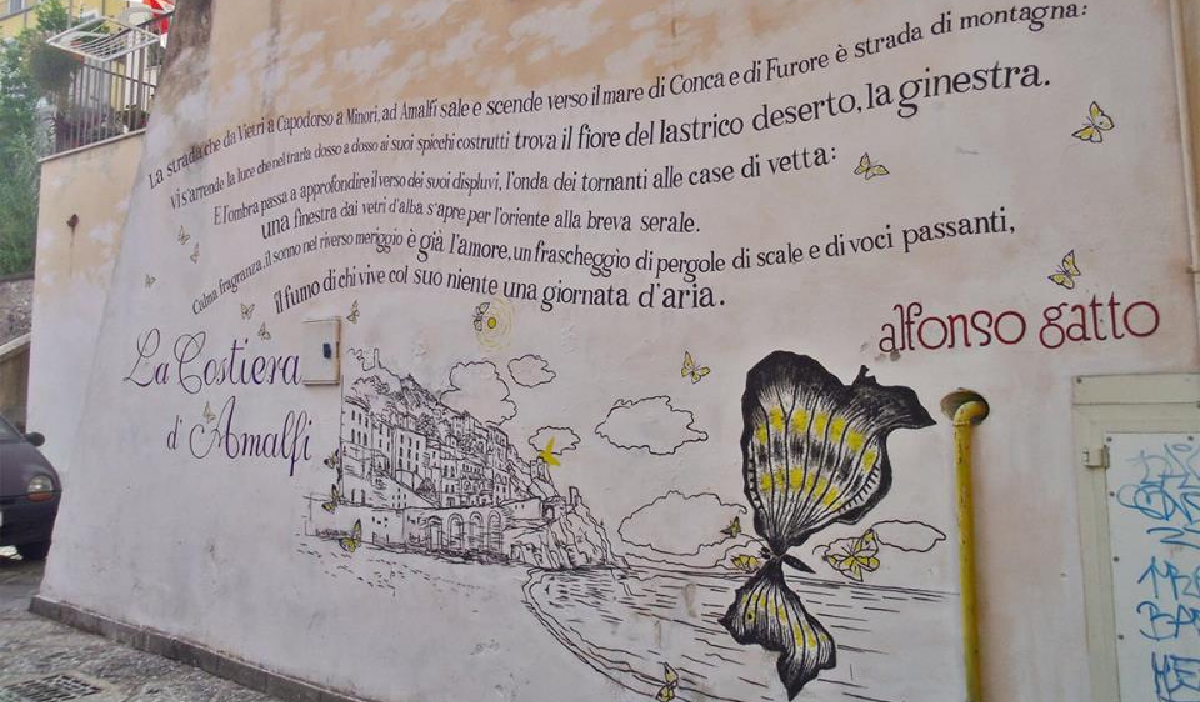 La strada che da Vietri a Capodorso a Minori, ad Amalfi sale e scende verso il mare di Conca e di Furore è strada di montagna:
vi s'arrende la luce che nel trarla dosso a dosso ai suoi spicchi costrutti trova il fiore del lastrico deserto, la ginestra.
E l'ombra passa a approfondire il verso dei suoi displuvi, l'onda dei tornanti alle case di vetta:
una finestra dai vetri d'alba s'apre per l'oriente alla breva serale.
Calma fragranza, il sonno nel riverso meriggio è già l'amore, un frascheggio di pergole di scale e di voci passanti,
il fumo di chi vive col suo niente una giornata d'aria.
alfonso gatto
La Costiera
d'Amalfi